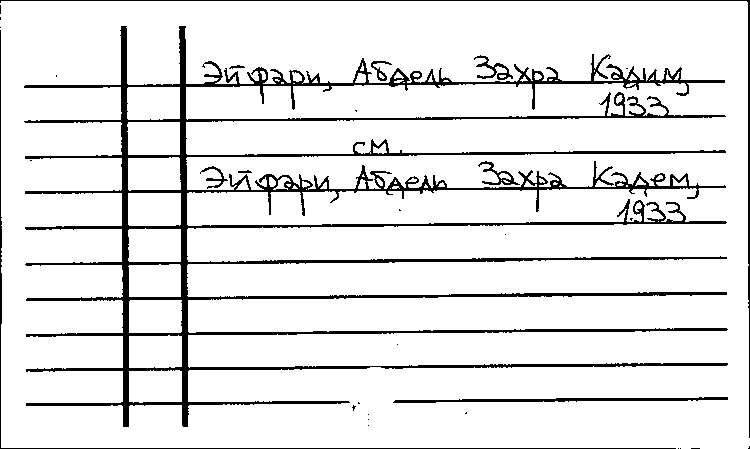 Эйфари, Абдель Захра Кадим,
1933
см.
Эйфари, Абдель Захра Кадем,
1933